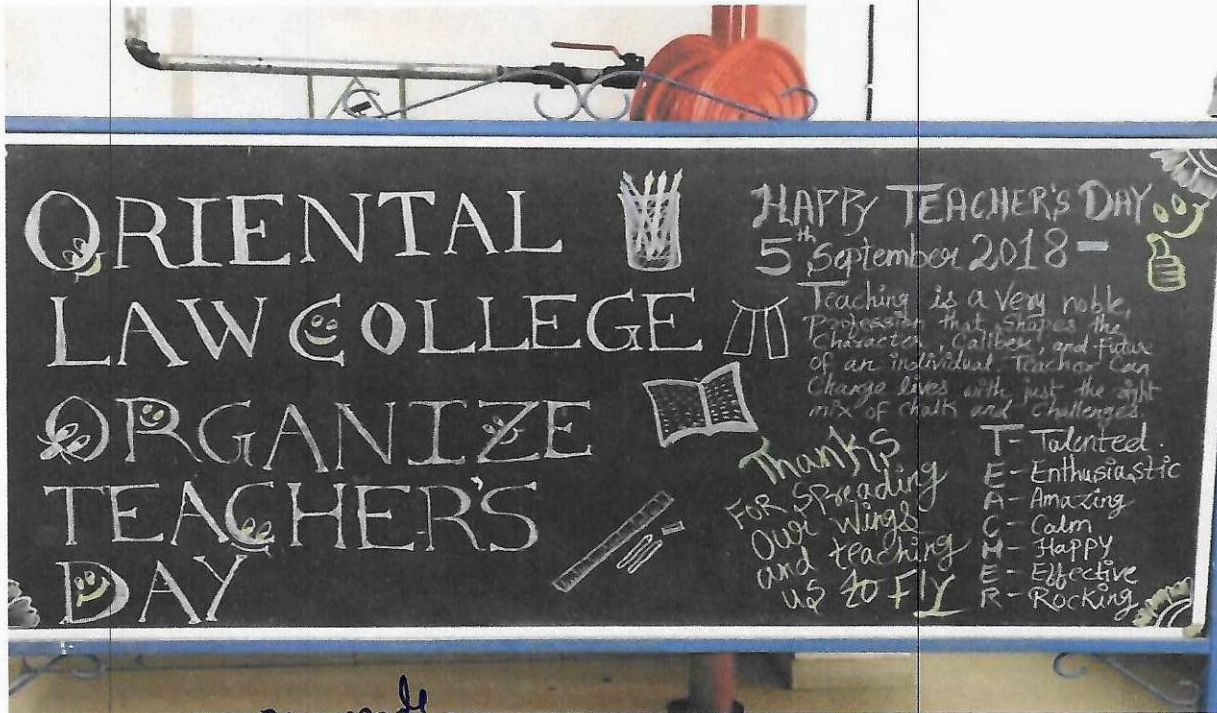 ORIENTAL
LAW COLLEGE
ORGANIZE
TEACHER'S
DAY
HAPPY TEACHER'S DAY
5th September 2018 -
Teaching is a very noble,
Profession that, Shapes the
Character, Caliber, and future
of an individual. Teacher Can
Change lives with just the right
mix of Chalk and Challenges.
Thanks
FOR SPReading
Our Wings
and teaching
us to FLY
T - Talented.
E - Enthusiastic
A - Amazing
C - Calm
H - Happy
E - Effective
R - Rocking